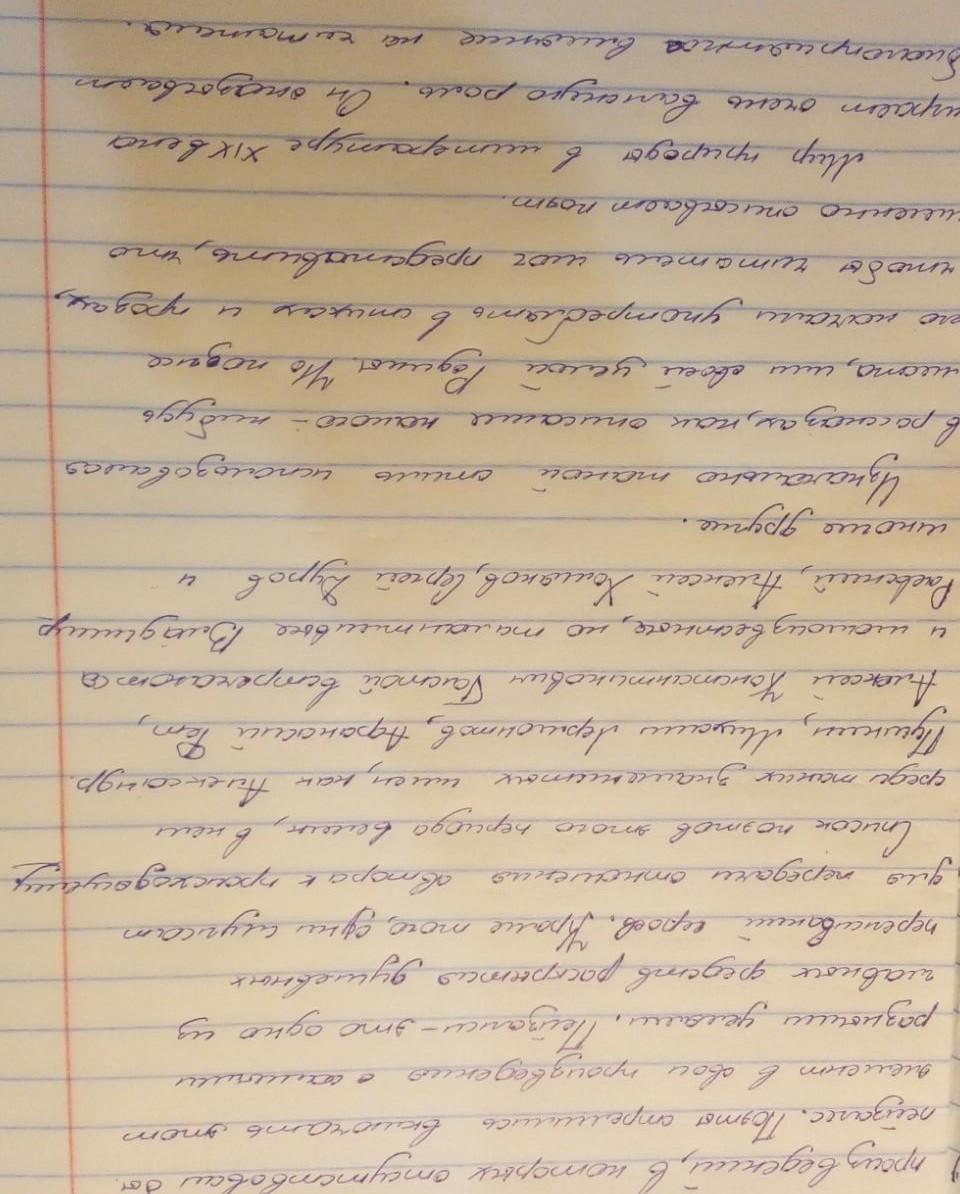 произведений, в которых отсутствовал бы
пейзаж. Поэты стремились включать этот
элемент в свои произведения с самыми
разными целями. Пейзаж - это одно из
главных средств раскрытия душевных
переживаний героев. Кроме того, они служат
для передачи отношения автора к происходящему
Список поэтов этого периода велик, в нем
среди таких знаменитых имен, как Александр
Пушкин, Михаил Лермонтов, Афанасий Фет,
Алексей Константинович Толстой встречаются
и малоизвестные, но талантливые Владимир
Раевский, Алексей Хомяков, Сергей Дуров и
многие другие.
Изначально такой стиль использовался
в рассказах, как описание какого-нибудь
места, или своей целой Родины. Но позже
его начали употреблять в стихах и прозах,
чтобы читатель мог представить, что
именно описывает поэт.
Мир природы в литературе XIX века
играет очень важную роль. Он оказывает
благоприятное влияние на читателя.